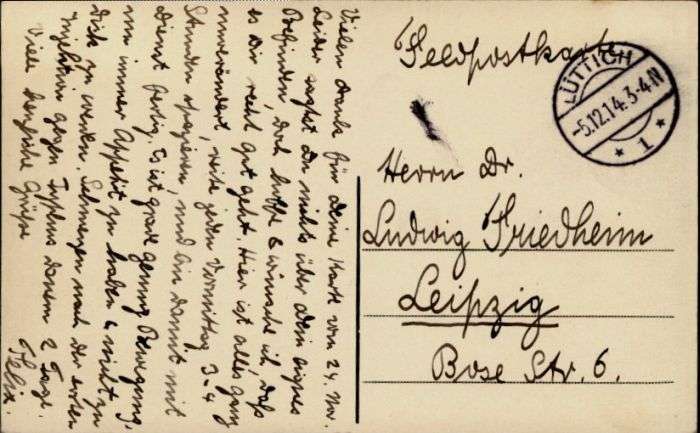 Feldpostkarte
LÜTTICH
-5.12.14.3-4N
* 1 *
Herrn Dr.
Ludwig Friedheim
Leipzig
Bose Str. 6.
Vielen Dank für Deine Karte von 24. Nov.
Leider sagst Du nichts über Dein eignes
Befinden, doch hoffe & wünsche ich, daß
es Dir recht gut geht. Hier ist alles ganz
unverändert, reite jeden Vormittag 3-4
Stunden spazieren, und bin damit mit
Dienst fertig. Es ist grade genug Bewegung,
um immer Appetit zu haben & nicht zu
dick zu werden. Schmerzen nach der ersten
Injektion gegen Typhus dauern 2 Tage.
Viele herzliche Grüße
Felix.